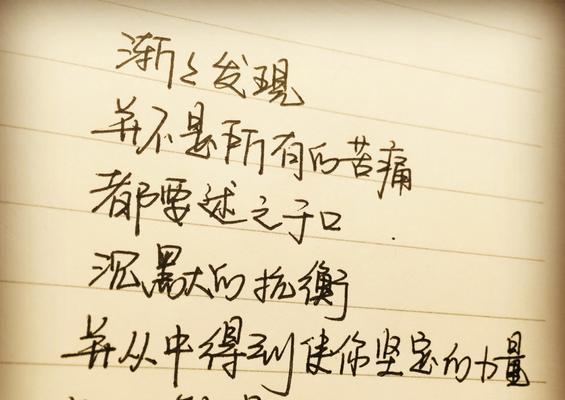 渐々发現
并不是所有的苦痛
都要述之于口
沉默的抗衡
并从中得到使你坚定的力量